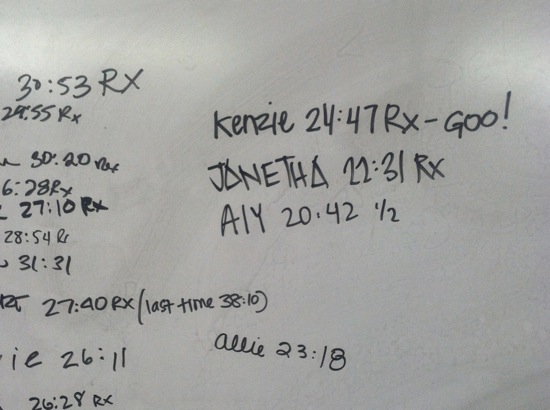 30:53 RX
29:55 Rx
30:20 Rx
6:28 Rx
27:10 RX
28:54 Rx
31:31
27:40 RX (last time 38:10)
ie 26:11
26:28 RX
Kenzie 24:47 RX - GOO!
JANETHA 22:31 RX
AlY 20:42 1/2
allie 23:18